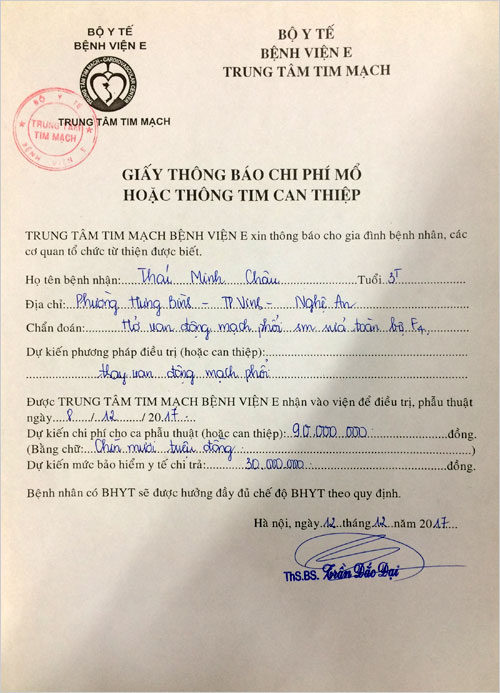 BỘ Y TẾ
BỆNH VIỆN E
TRUNG TÂM TIM MẠCH - CARDIOVASCULAR CENTER
TRUNG TÂM TIM MẠCH
BỘ Y TẾ
BỆNH VIỆN E
TRUNG TÂM TIM MẠCH
BỘ Y TẾ
TRUNG TÂM
TIM MẠCH
BỆNH VIỆN E
GIẤY THÔNG BÁO CHI PHÍ MỔ
HOẶC THÔNG TIM CAN THIỆP
TRUNG TÂM TIM MẠCH BỆNH VIỆN E xin thông báo cho gia đình bệnh nhân, các
cơ quan tổ chức từ thiện được biết.
Họ tên bệnh nhân: Thái Minh Châu Tuổi 3T
Địa chỉ: Phường Hưng Bình - TP Vinh - Nghệ An
Chẩn đoán: Hở van động mạch phổi sm sửa toàn bộ F4
Dự kiến phương pháp điều trị (hoặc can thiệp):
thay van động mạch phổi
Được TRUNG TÂM TIM MẠCH BỆNH VIỆN E nhận vào viện để điều trị, phẫu thuật
ngày 8 / 12 / 2017
Dự kiến chi phí cho ca phẫu thuật (hoặc can thiệp): 90.000.000 đồng.
(Bằng chữ: Chín mươi triệu đồng )
Dự kiến mức bảo hiểm y tế chi trả: 30.000.000 đồng.
Bệnh nhân có BHYT sẽ được hưởng đầy đủ chế độ BHYT theo quy định.
Hà nội, ngày 12 tháng 12 năm 2017
ThS.BS. Trần Đắc Đại